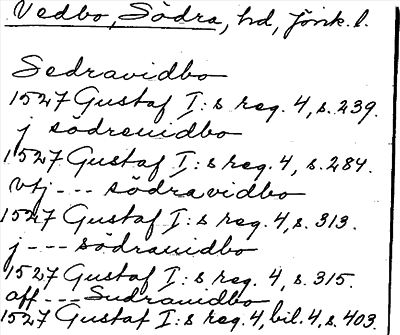 Vedbo, Södra, hd, Jönk. l.
Sedravidbo
1527 Gustaf I:s reg. 4, s. 239.
j södreuidbo
1527 Gustaf I:s reg. 4, s. 284.
vtj --- södravidbo
1527 Gustaf I:s reg. 4, s. 313.
j --- södrauidbo
1527 Gustaf I:s reg. 4, s. 315.
aff --- Sudravidbo
1527 Gustaf I:s reg. 4, bil. 4, s. 403.